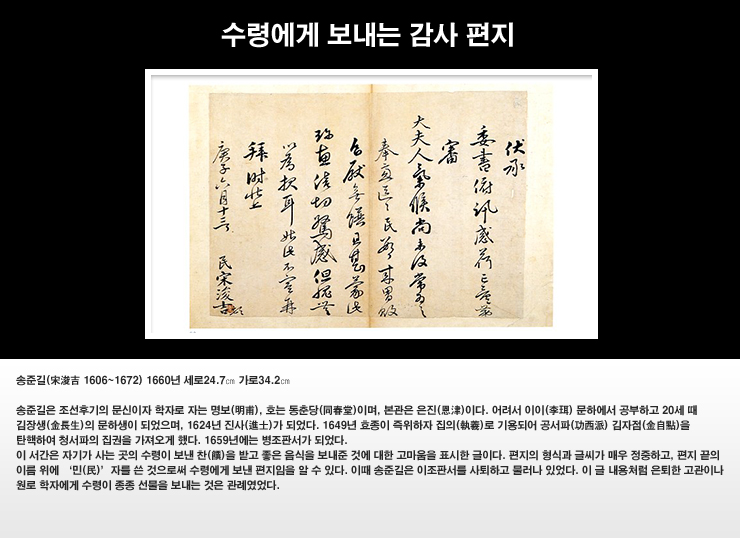 수령에게 보내는 감사 편지
伏承
委書俯訊感荷
審
大夫人氣候尚未復常
奉慮區區民
珍惠 切 感但愧無
以爲報耳 不宣再
拜
庚子六月十三日 民宋浚吉
송준길(宋浚吉 1606~1672) 1660년 세로24.7㎝ 가로34.2㎝
송준길은 조선후기의 문신이자 학자로 자는 명보(明甫), 호는 동춘당(同春堂)이며, 본관은 은진(恩津)이다. 어려서 이이(李珥) 문하에서 공부하고 20세 때
김장생(金長生)의 문하생이 되었으며, 1624년 진사(進士)가 되었다. 1649년 효종이 즉위하자 집의(執義)로 기용되어 공서파(功西派) 김자점(金自點)을
탄핵하여 청서파의 집권을 가져오게 했다. 1659년에는 병조판서가 되었다.
이 서간은 자기가 사는 곳의 수령이 보낸 찬(饌)을 받고 좋은 음식을 보내준 것에 대한 고마움을 표시한 글이다. 편지의 형식과 글씨가 매우 정중하고, 편지 끝의
이름 위에 ‘민(民)’자를 쓴 것으로써 수령에게 보낸 편지임을 알 수 있다. 이때 송준길은 이조판서를 사퇴하고 물러나 있었다. 이 글 내용처럼 은퇴한 고관이나
원로 학자에게 수령이 종종 선물을 보내는 것은 관례였었다.